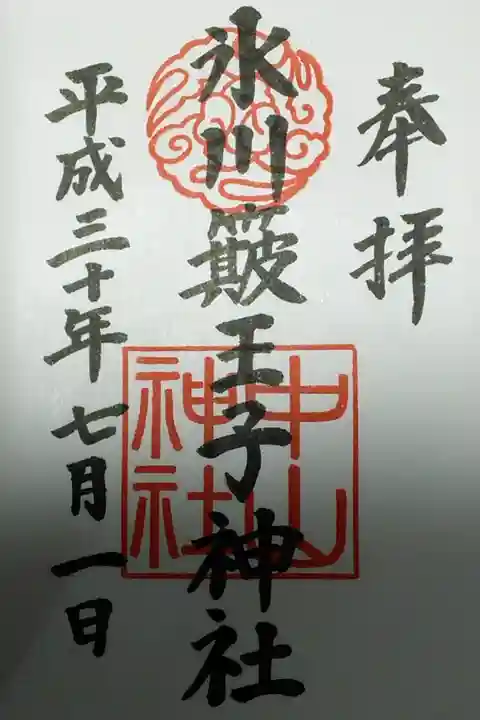 奉拝
氷川簸王子神社
中山神社
平成三十年七月一日